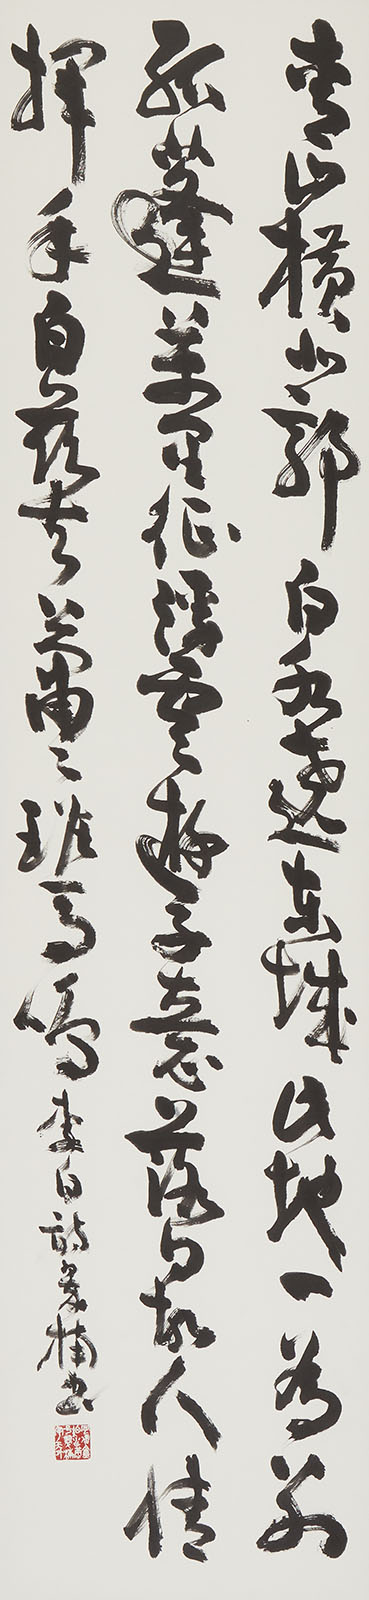 青山橫北郭白水遶東城此地一為別
孤蓬萬里征浮雲遊子意落日故人情
揮手自茲去蕭々班馬鳴李白詩楠書